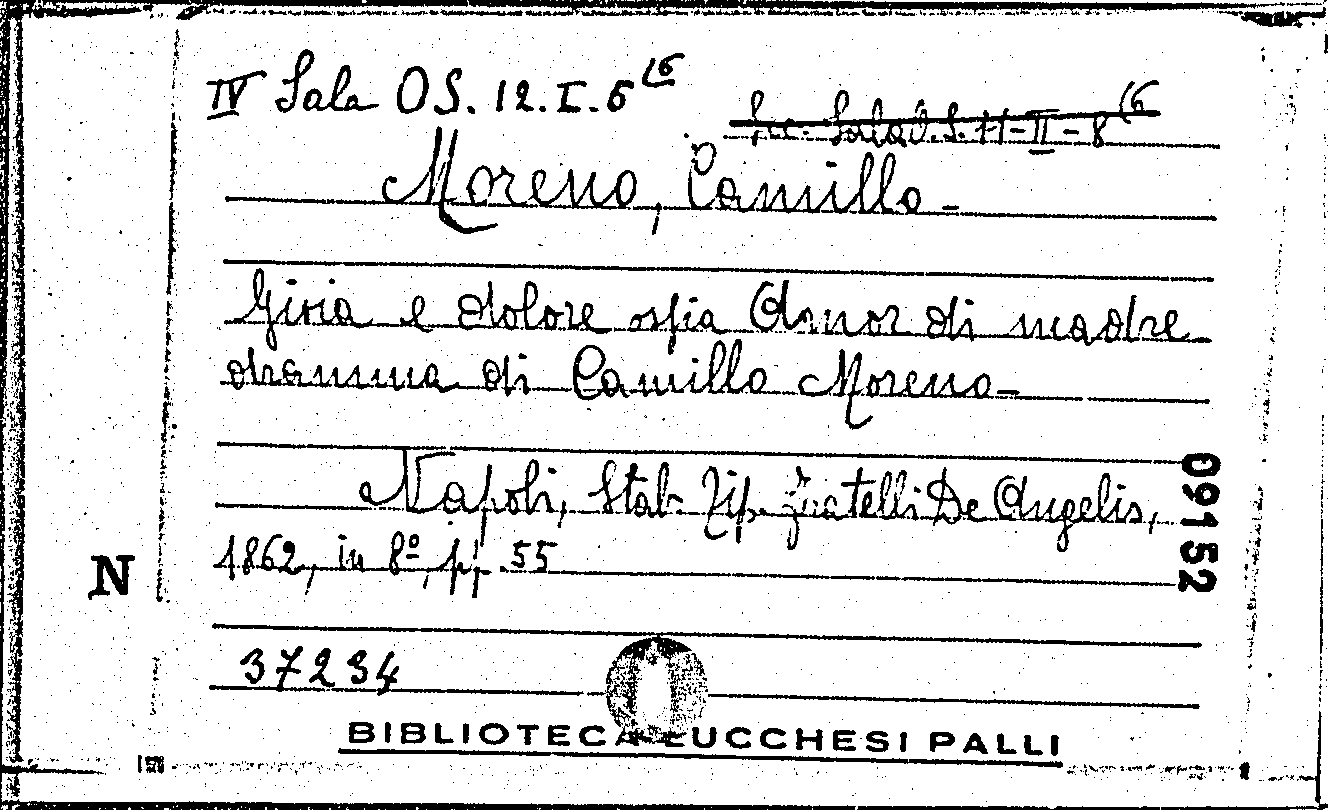 IV Sala O S. 12. I. 6 (6
Sala O.S. 11-II-8 (6
Moreno, Camillo-
Gioia e dolore ossia Amor di madre
dramma di Camillo Moreno-
Napoli, Stab. Tip. Fratelli De Angelis,
1862, in 8º, pp. 55
09152
N
37234
BIBLIOTECA LUCCHESI PALLI